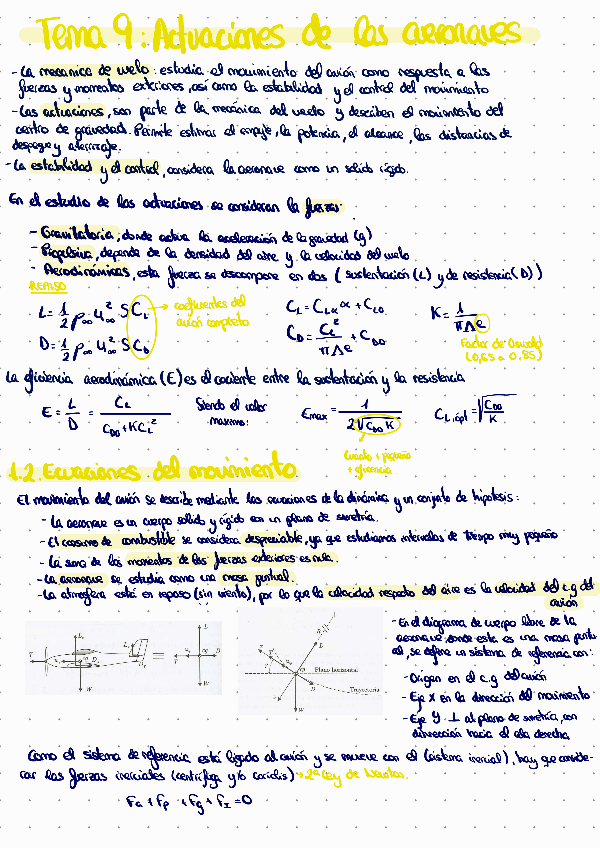 Tema 9: Actuaciones de las aeronaves
- La mecanica de vuelo: estudia el movimiento del avión como respuesta a las
fuerzas y momentos exteriores, así como la estabilidad y el control del movimiento
- Las actuaciones, son parte de la mecánica del vuelo y describen el movimiento del
centro de gravedad. Permite estimar el empuje, la potencia, el alcance, las distancias de
despegue y aterrizaje.
- La estabilidad y el control, considera la aeronave como un solido rígido.
En el estudio de las actuaciones se consideran la fuerzas:
- Gravitatoria, donde actua la aceleración de la gravedad (g)
- Propulsiva, depende de la densidad del aire y la velocidad del vuelo
- Aerodinámicas, esta fuerza se descompone en dos (sustentación (L) y de resistencia (D))
REPASO
L = 1/2 ρ∞ u∞² S CL
D = 1/2 ρ∞ u∞² S CD
→ coeficientes del
avión completo
CL = CLα α + CL0
CD = CL²/πΛe + CD0
K = 1/πΛe
Factor de Oswald
(0,65 a 0,85)
La eficiencia aerodinámica (E) es el cociente entre la sustentación y la resistencia
E = L/D = CL/(CD0 + KCL²)
Siendo el valor
maximo:
Emax = 1/(2√(CD0 K))
CL,ópt = √(CD0/K)
Cuanto + pequeño
+ eficiencia
1.2. Ecuaciones del movimiento
El movimiento del avión se describe mediante las ecuaciones de la dinámica y un conjunto de hipotesis:
- La aeronave es un cuerpo solido y rígido con un plano de simetría.
- El consumo de combustible se considera despreciable, ya que estudiamos intervalos de tiempo muy pequeño
- La suma de los momentos de las fuerzas exteriores es nula.
- La aeronave se estudia como una masa puntual.
- La atmosfera está en reposo (sin viento), por lo que la velocidad respecto del aire es la velocidad del c.g del
avión
Plano horizontal
Trayectoria
- En el diagrama de cuerpo libre de la
aeronave, donde esta es una masa puntu
al, se define un sistema de referencia con:
- Origen en el c.g del avión
- Eje X en la dirección del movimiento
- Eje Y ⊥ al plano de simetría, con
direección hacia el ala derecha
Como el sistema de referencia está ligado al avión y se mueve con el (sistema inercial), hay que conside-
rar las fuerzas inerciales (centrífuga y/o coriolis) → 2ª Ley de Newton.
Fa + Fp + Fg + FI = 0